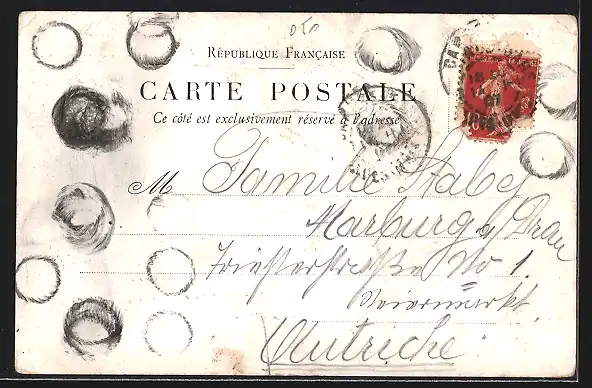 RÉPUBLIQUE FRANÇAISE
CARTE POSTALE
Ce côté est exclusivement réservé à l'adresse
M Familie Stabej
Marburg a/ Drau
Triesterstraße No 1.
Steiermarkt
Autriche.